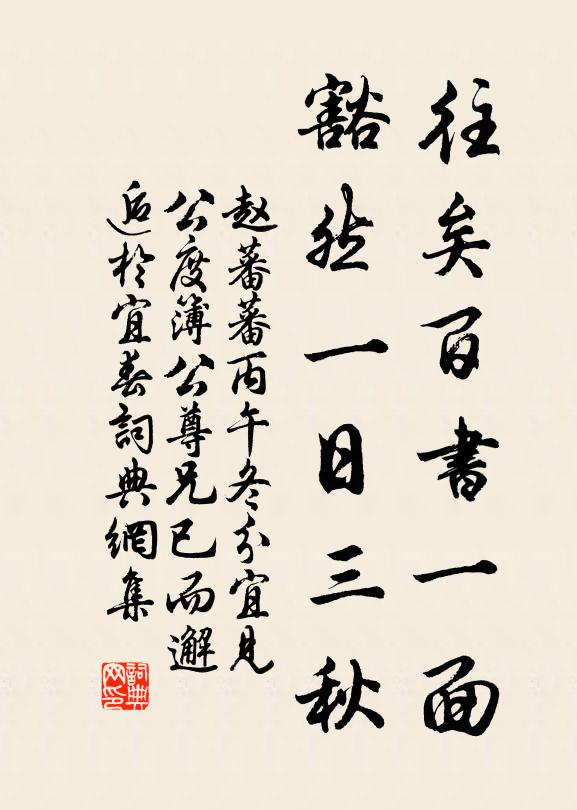 往矣百書一面
豁然一日三秋
赵蕃蕃丙午冬分宜見
公度簿公尊兄已而邂
逅於宜春詞典網集
詞典网印